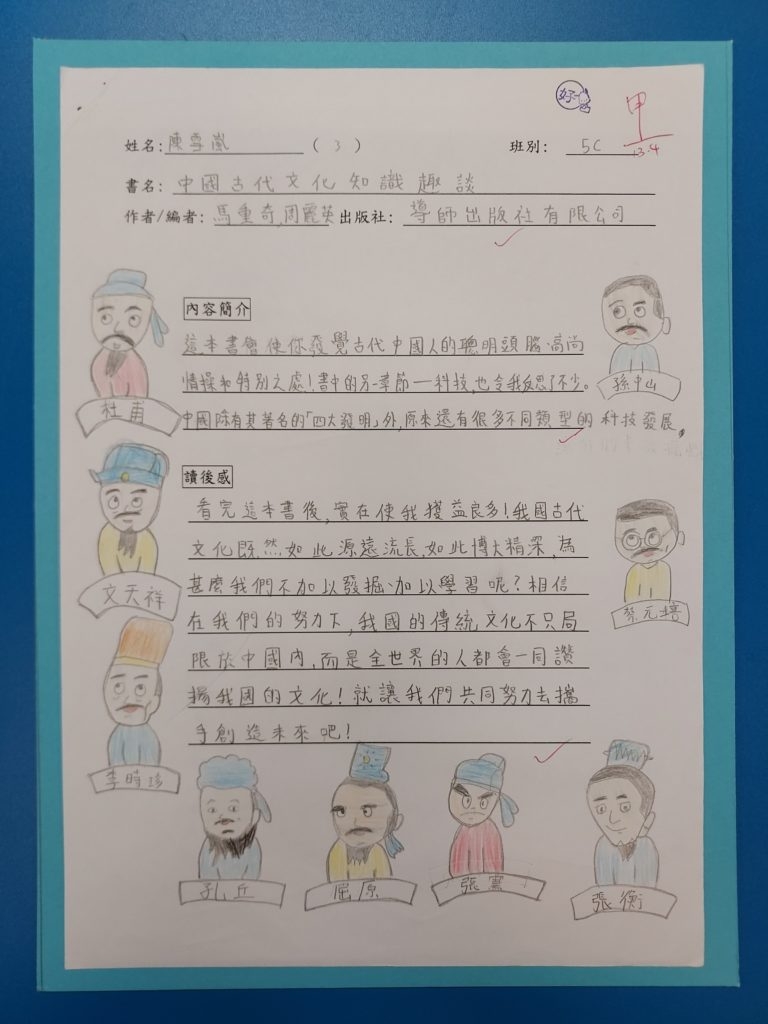 好
甲
13.4
姓名：陳雪嵐 （ 3 ） 班別： 5C
書名：中國古代文化知識趣談
作者/編者：馬重奇,周麗英 出版社：導師出版社有限公司
內容簡介
這本書會使你發覺古代中國人的聰明頭腦、高尚
情操和特別之處！書中的另一季節——科技，也令我反思了不少。
中國除有其著名的「四大發明」外，原來還有很多不同類型的科技發展。
讀後感
看完這本書後，實在使我獲益良多！我國古代
文化既然如此源遠流長，如此博大精深，為
甚麼我們不加以發掘、加以學習呢？相信
在我們的努力下，我國的傳統文化不只局
限於中國內，而是全世界的人都會一同讚
揚我國的文化！就讓我們共同努力去攜
手創造未來吧！
杜甫
孫中山
文天祥
蔡元培
李時珍
孔丘
屈原
張騫
張衡